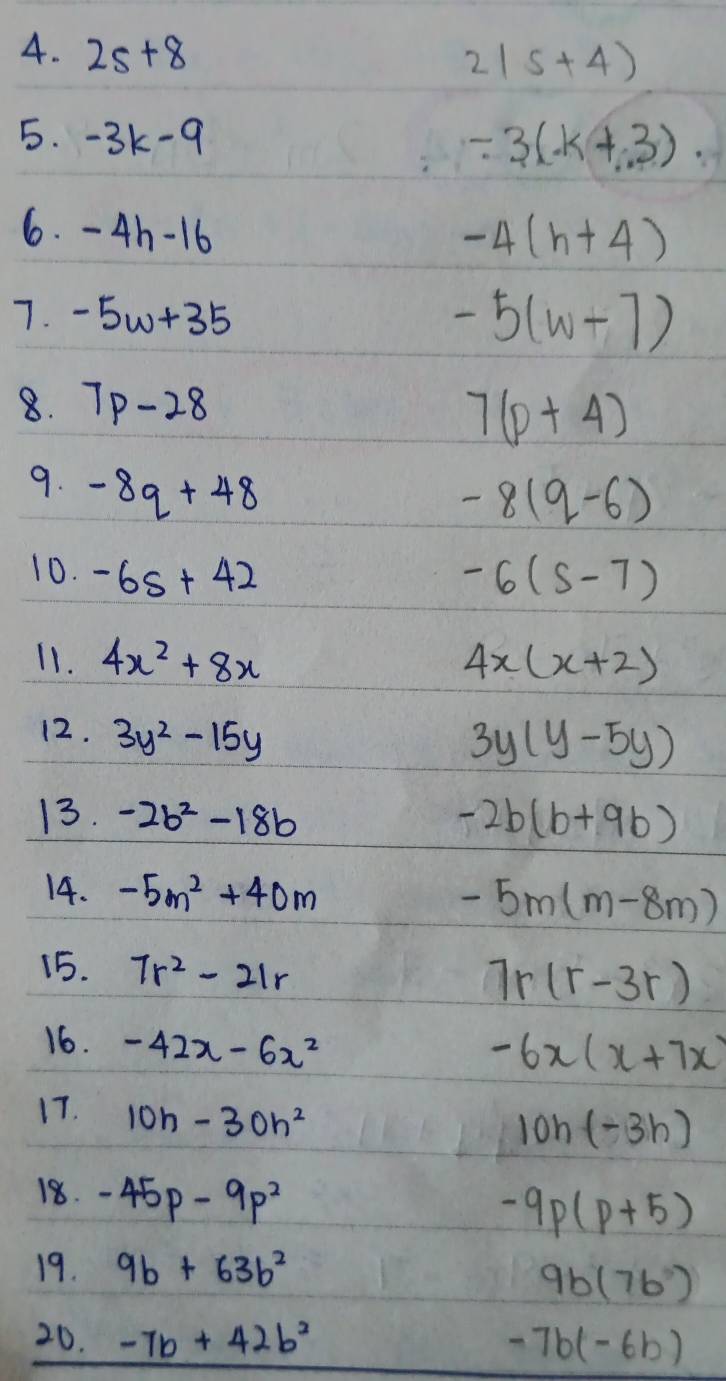 4. 2s+8 2(s+4)
5. -3k-9 -3(k+3)
6. -4h-16 -4(h+4)
7. -5w+35 -5(w-7)
8. 7p-28 7(p+4)
9. -8q+48 -8(q-6)
10. -6s+42 -6(s-7)
11. 4x²+8x 4x(x+2)
12. 3y²-15y 3y(y-5y)
13. -2b²-18b -2b(b+9b)
14. -5m²+40m -5m(m-8m)
15. 7r²-21r 7r(r-3r)
16. -42x-6x² -6x(x+7x)
17. 10h-30h² 10h(-3h)
18. -45p-9p² -9p(p+5)
19. 9b+63b² 9b(7b)
20. -7b+42b² -7b(-6b)